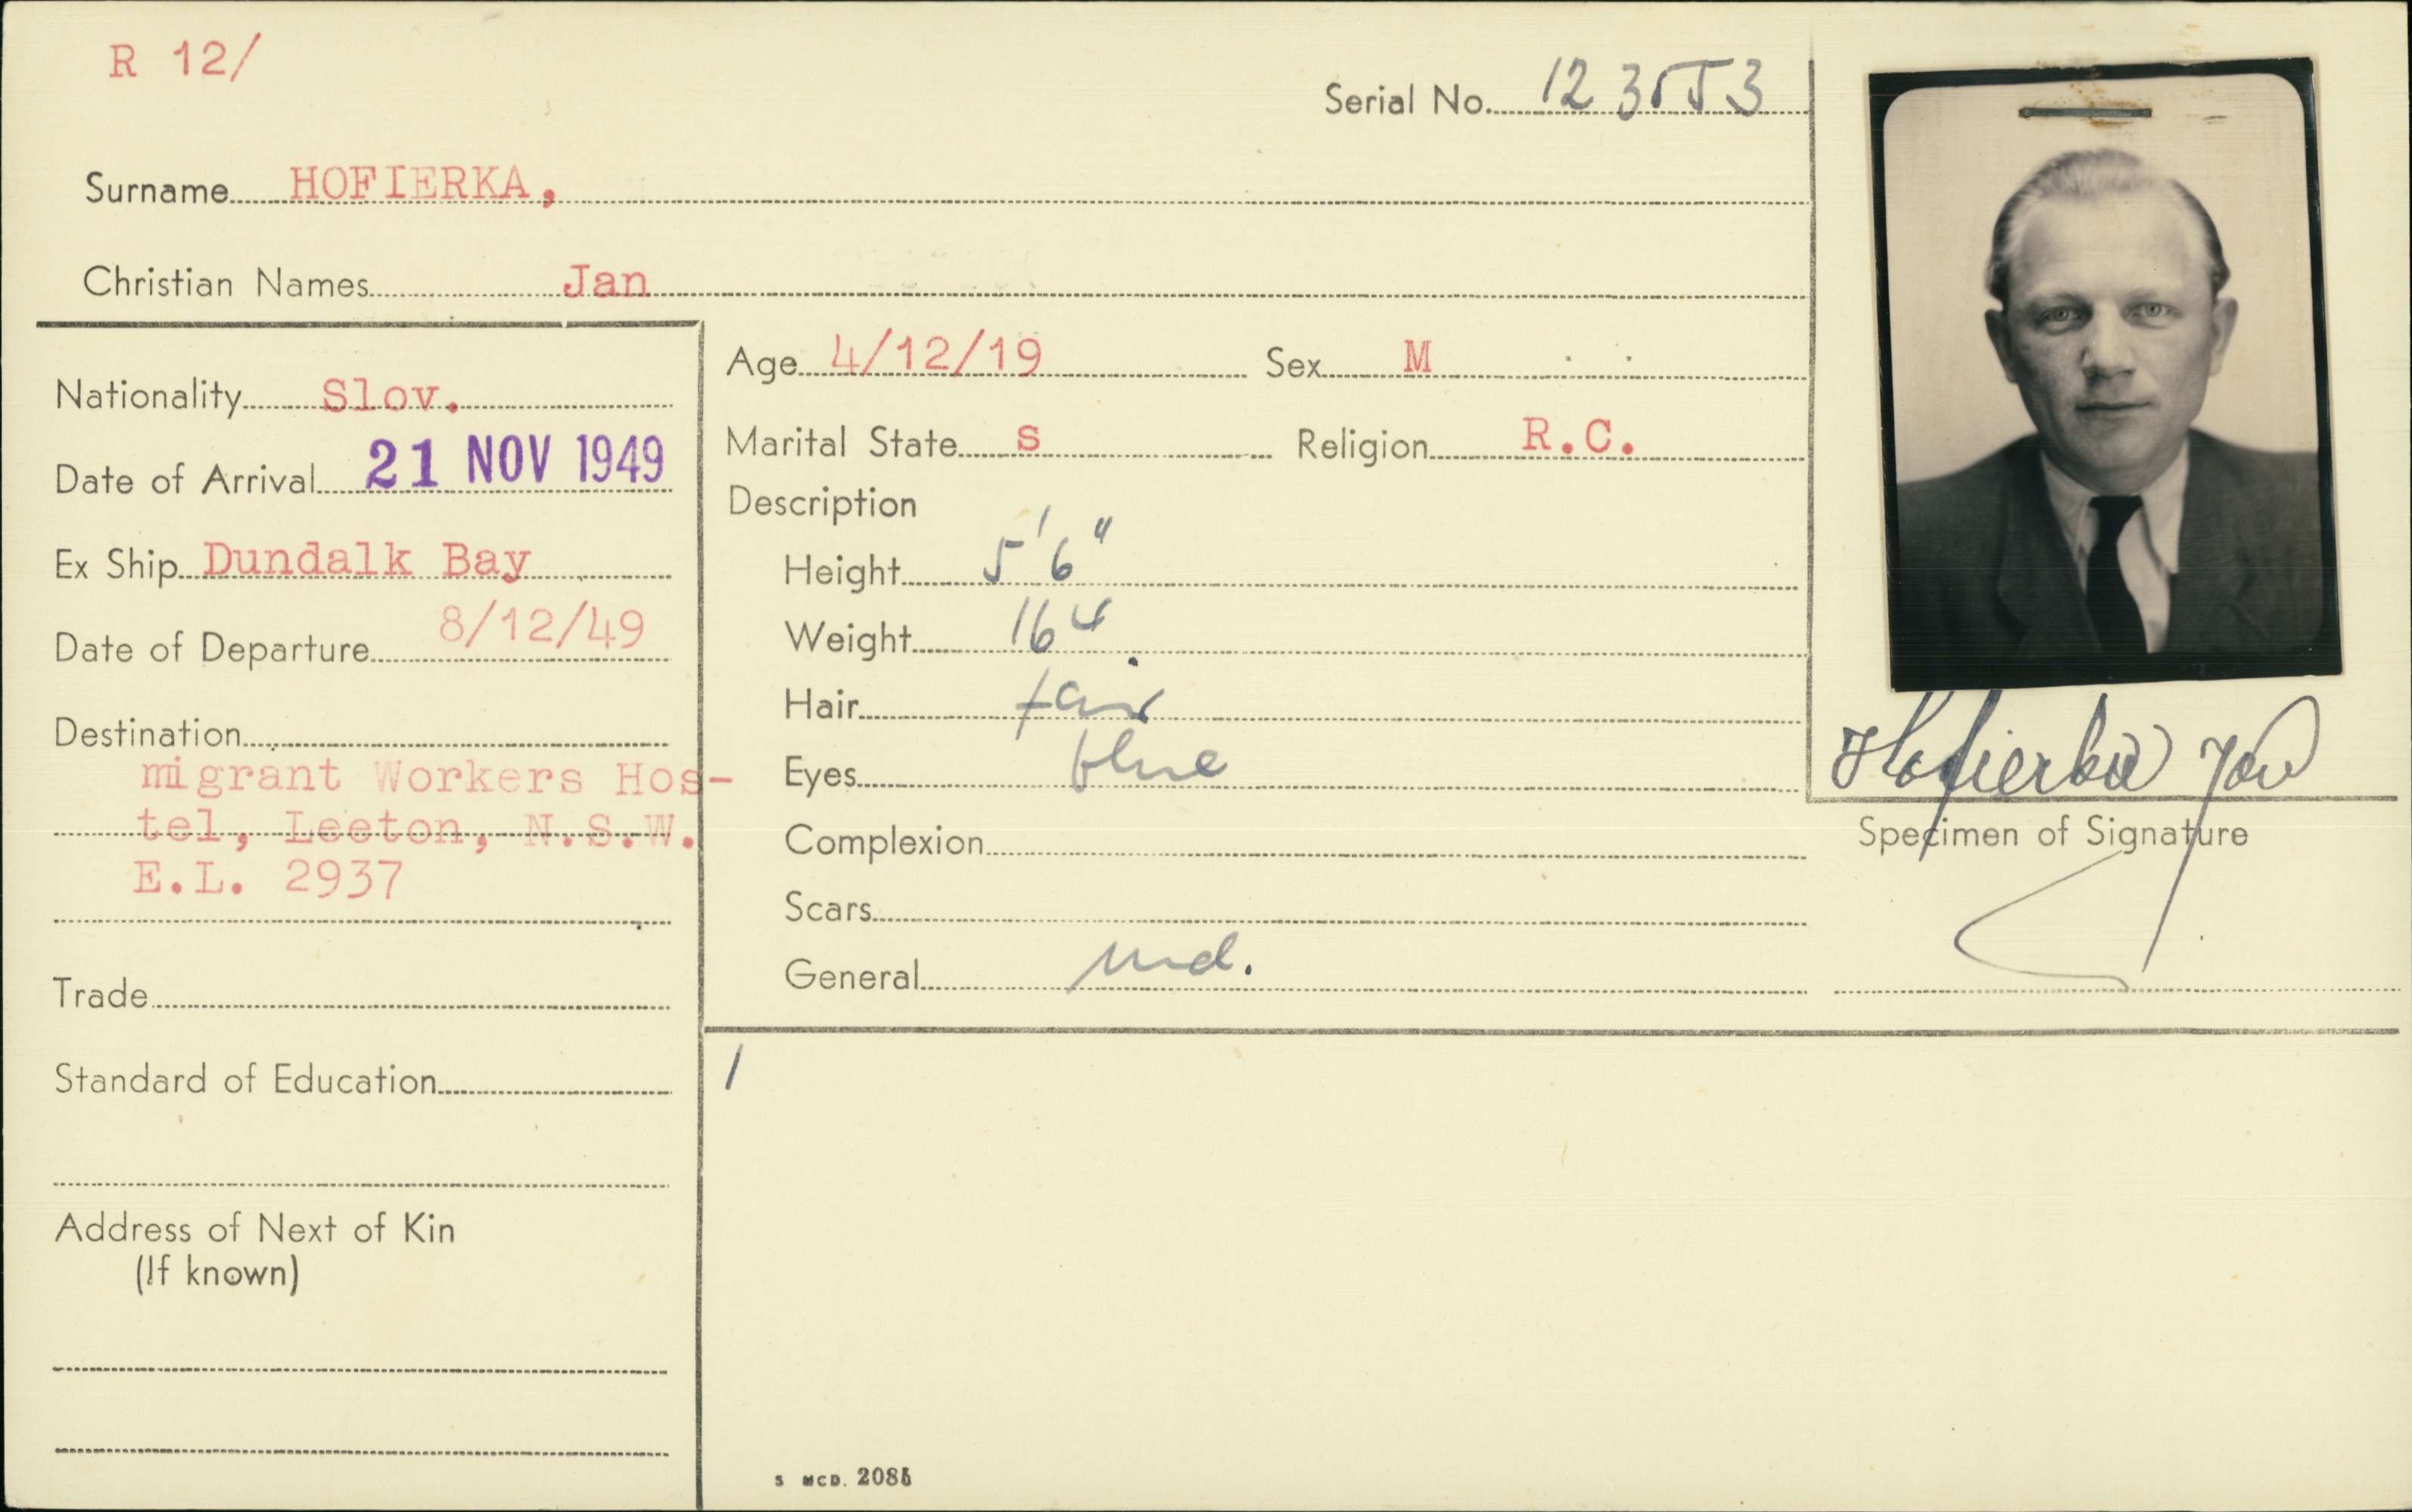 R 12/
Serial No. 123553
Surname HOFIERKA,
Christian Names Jan
Nationality Slov.
Date of Arrival 21 NOV 1949
Ex Ship Dundalk Bay
Date of Departure 8/12/49
Destination
migrant Workers Hos-
tel, Leeton, N.S.W.
E.L. 2937
Trade
Standard of Education
Address of Next of Kin
(If known)
Age 4/12/19 Sex M
Marital State S Religion R.C.
Description
Height 5'6"
Weight 164
Hair fair
Eyes blue
Complexion
Scars
General md.
Hofierka Jan
Specimen of Signature
S MCD. 2085